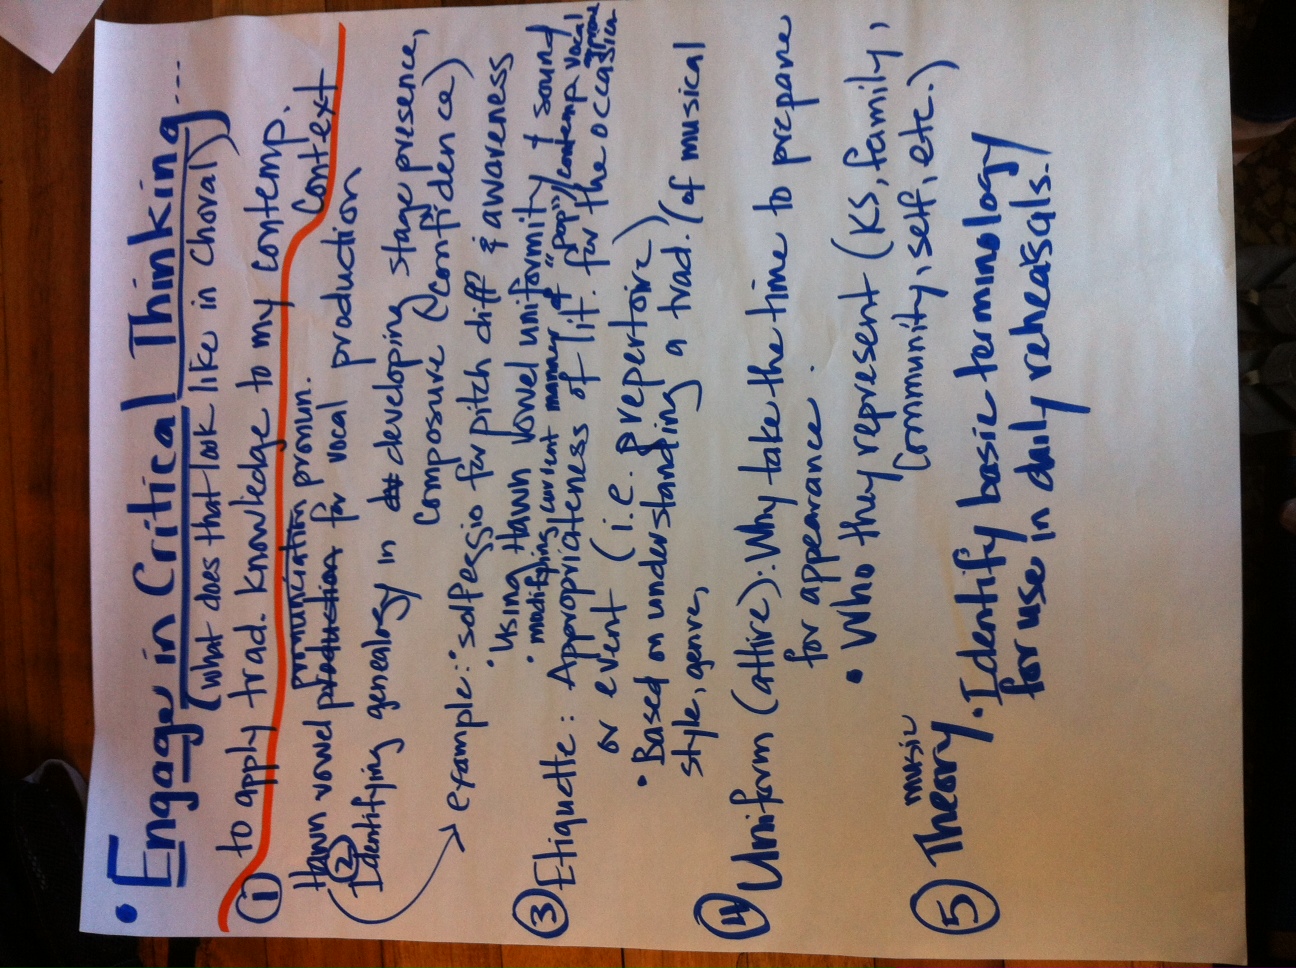 • Engage in Critical Thinking...
(what does that look like in Choral)
to apply trad. knowledge to my contemp.
Context
① pronunciation
Hawn vowel production pronun.
for vocal production
② Identifying genealogy in developing stage presence,
composure (confidence)
→ example: solfeggio for pitch diff & awareness
• Using Hawn vowel uniformity of sound
• modifying current manner of "pop"/contemp vocal
③ Etiquette: Appropriateness of lit. for the occasion
or event (i.e. repertoire)
• Based on understanding a trad. (of musical
style, genre,
④ Uniform (attire): Why take the time to prepare
for appearance.
• Who they represent (KS, family,
Community, self, etc.)
⑤ music
Theory • Identify basic terminology
for use in daily rehearsals.